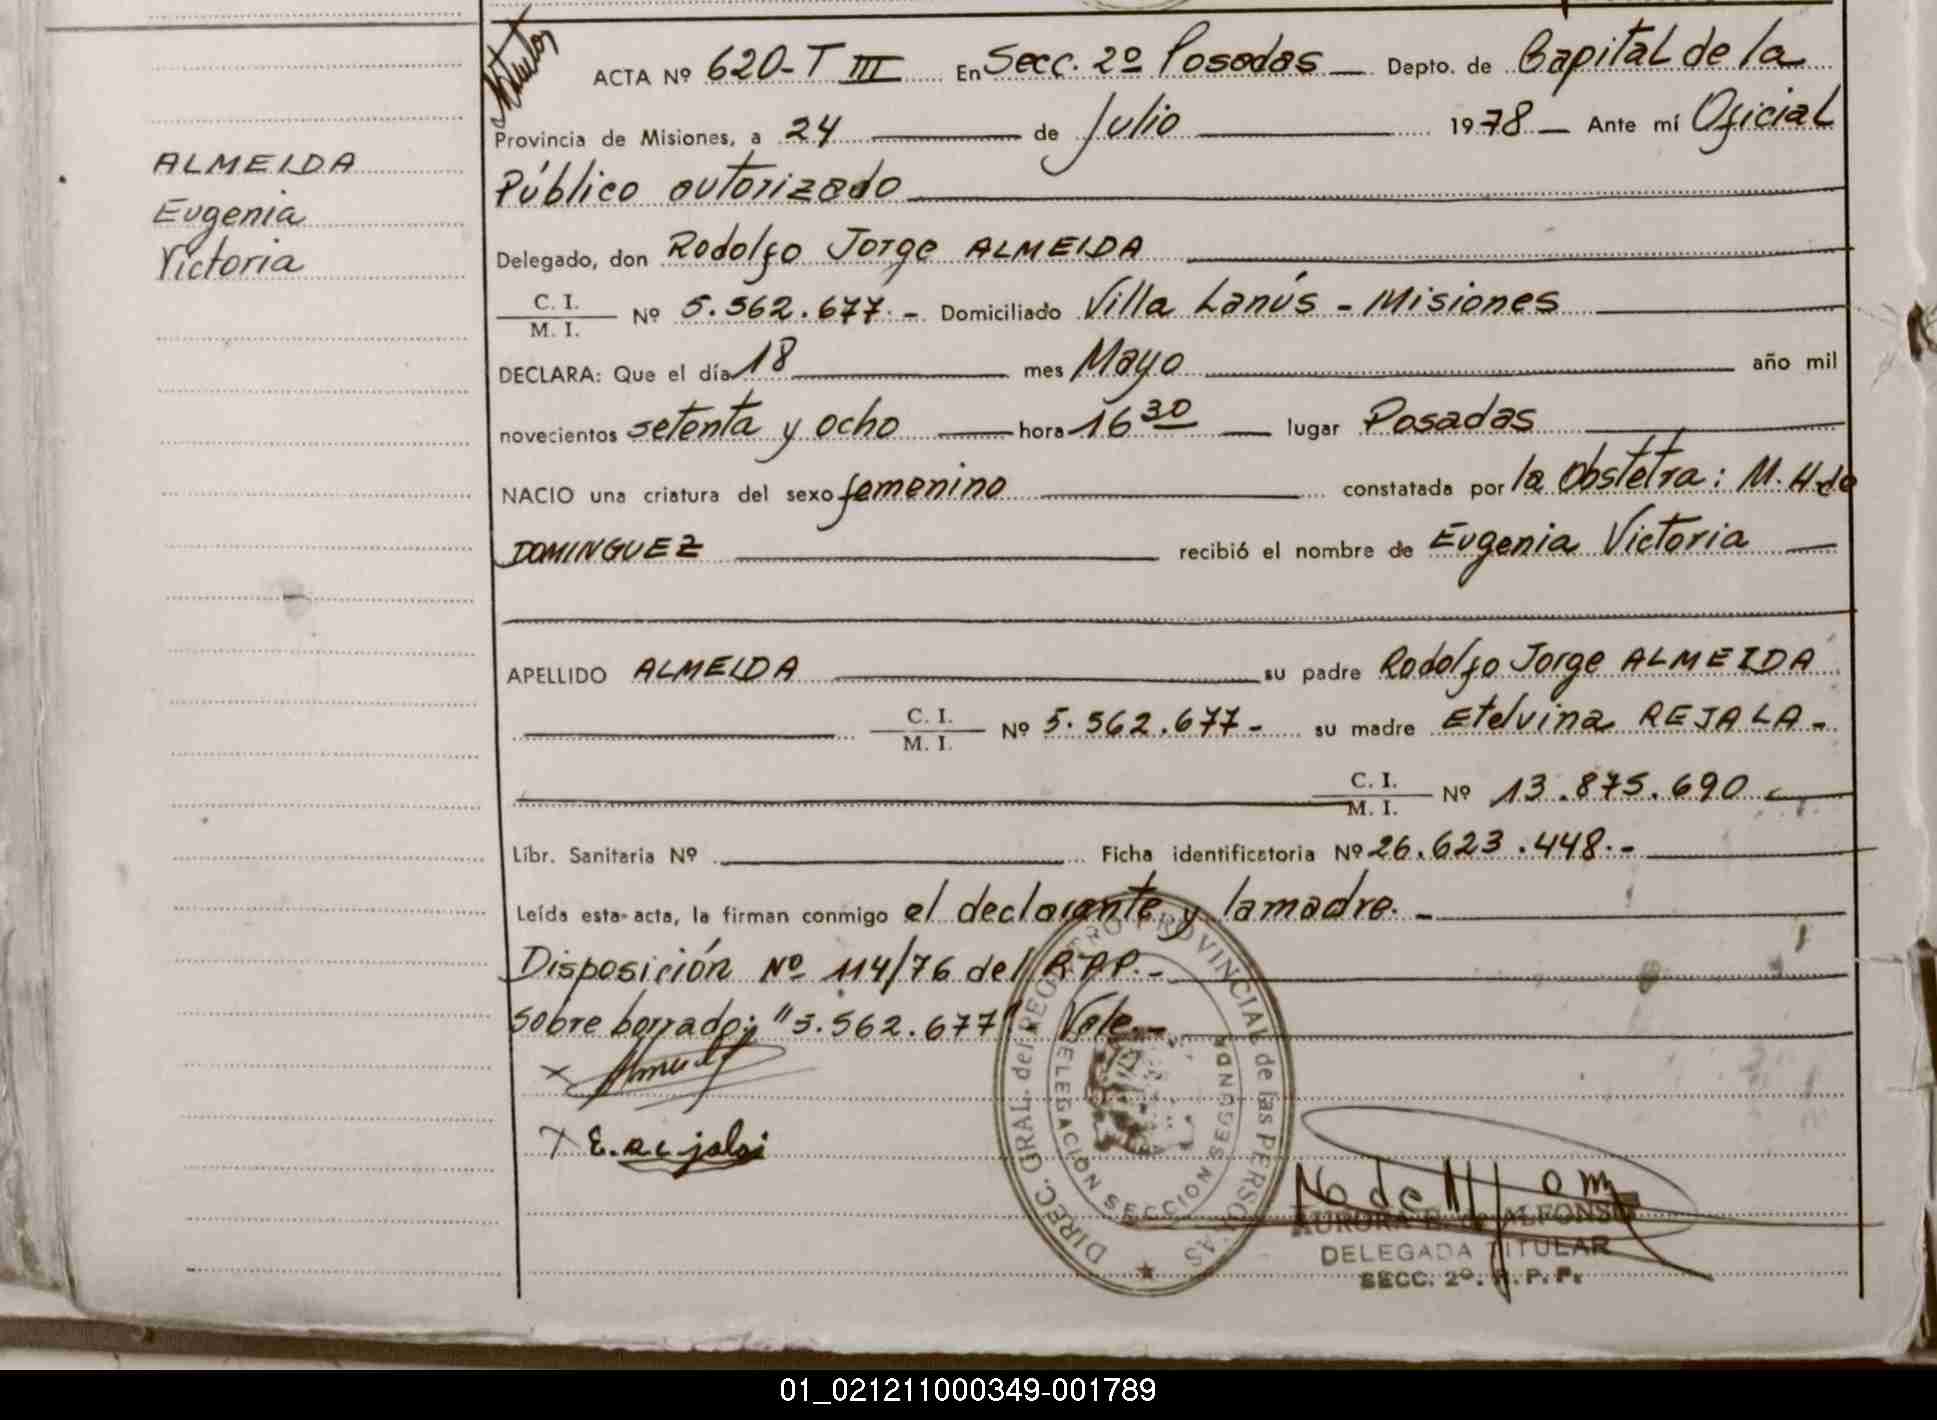 ALMEIDA
Eugenia
Victoria
ACTA Nº 620-T III En Secc. 2º Posadas Depto. de Capital de la
Provincia de Misiones, a 24 de Julio 1978 Ante mí Oficial
Público autorizado
Delegado, don Rodolfo Jorge ALMEIDA
C. I.
M. I. Nº 5.562.677.- Domiciliado Villa Lanús - Misiones
DECLARA: Que el día 18 mes Mayo año mil
novecientos setenta y ocho hora 16 30 lugar Posadas
NACIO una criatura del sexo femenino constatada por la Obstetra: M. H. de
DOMINGUEZ recibió el nombre de Eugenia Victoria
APELLIDO ALMEIDA su padre Rodolfo Jorge ALMEIDA
C. I.
M. I. Nº 5.562.677- su madre Etelvina REJALA-
C. I.
M. I. Nº 13.875.690
Libr. Sanitaria Nº Ficha identificatoria Nº 26.623.448.-
Leída esta acta, la firman conmigo el declarante y la madre.-
Disposición Nº 114/76 del R.P.P.-
Sobre borrado: "5.562.677". Vale.-
x
x E. Rejala
DIREC. GRAL. del REGISTRO PROVINCIAL de las PERSONAS
DELEGACION SECCION SEGUNDA
AURORA E. de ALFONSO
DELEGADA TITULAR
SECC. 2º. R. P. P.
01_021211000349-001789